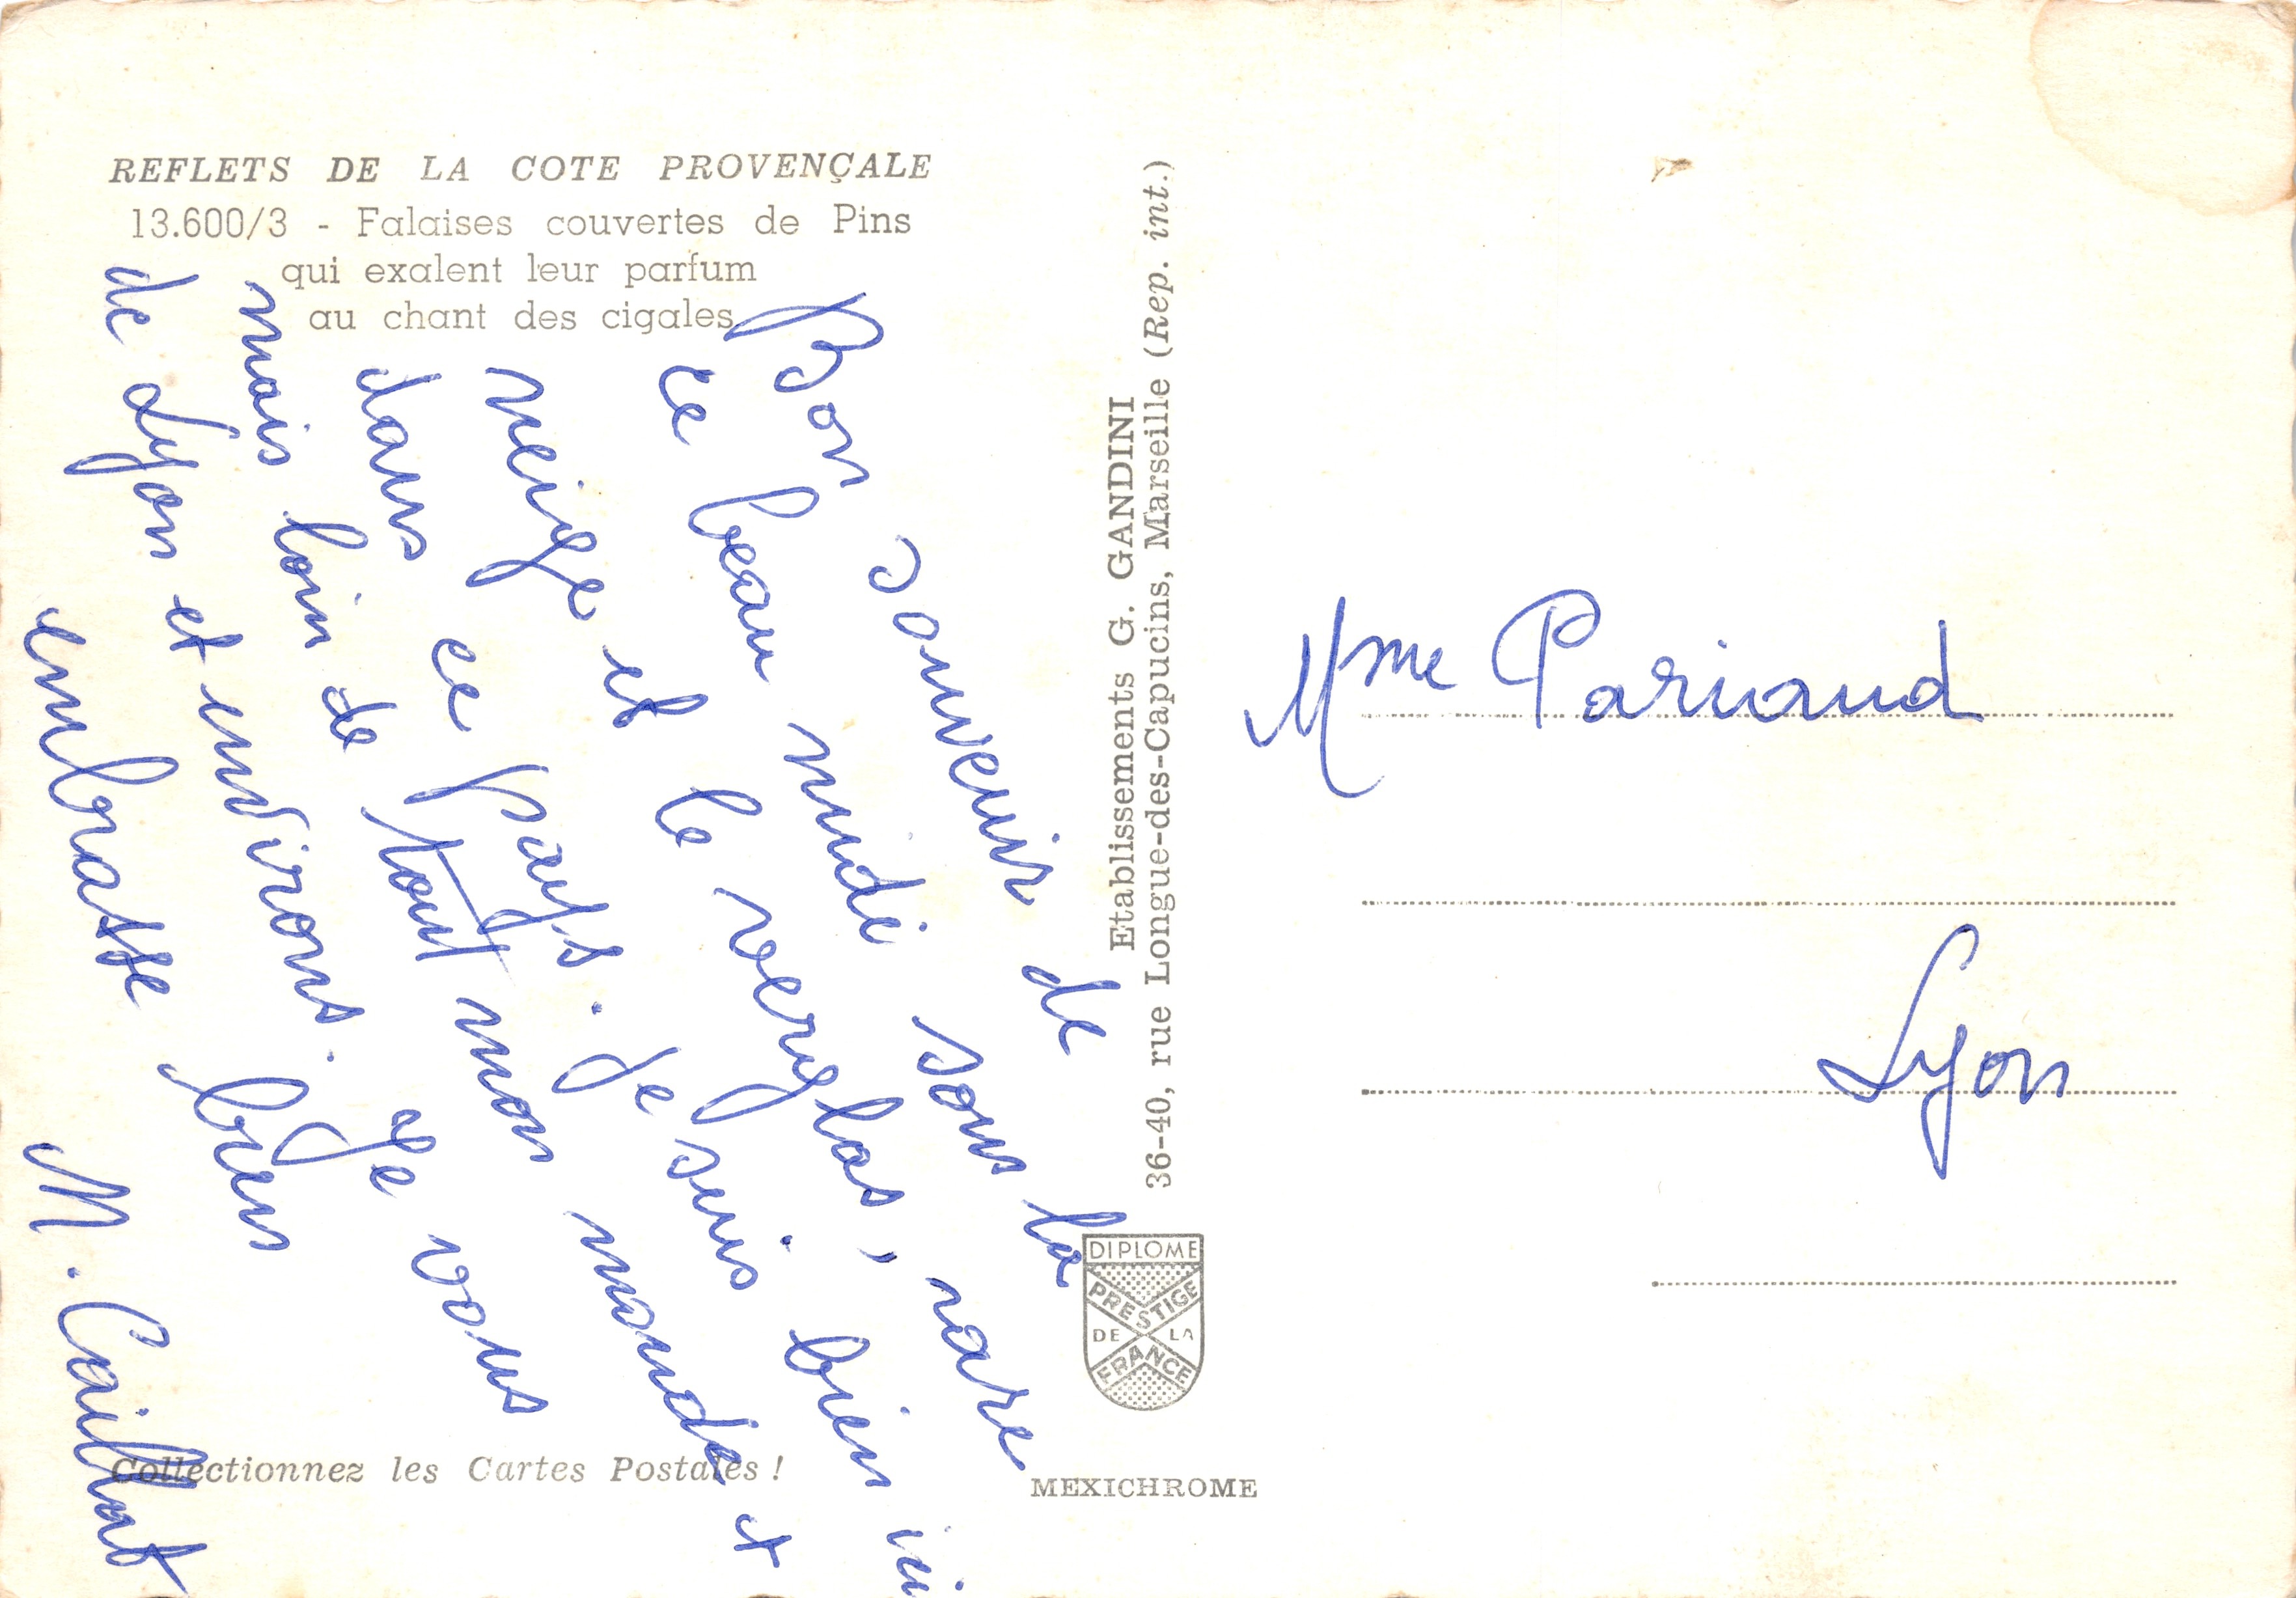 REFLETS DE LA COTE PROVENÇALE
13.600/3 - Falaises couvertes de Pins
qui exalent leur parfum
au chant des cigales
Bon souvenir de
ce beau midi sous la
neige et le verglas, rare
dans ce pays. Je suis bien ici
mais loin de tout mon monde +
de Lyon et environs. Je vous
embrasse bien
M. Caillat
Collectionnez les Cartes Postales !
Etablissements G. GANDINI
36-40, rue Longue-des-Capucins, Marseille (Rep. int.)
DIPLOME
PRESTIGE
DE LA
FRANCE
MEXICHROME
Mme Pariaud
Lyon